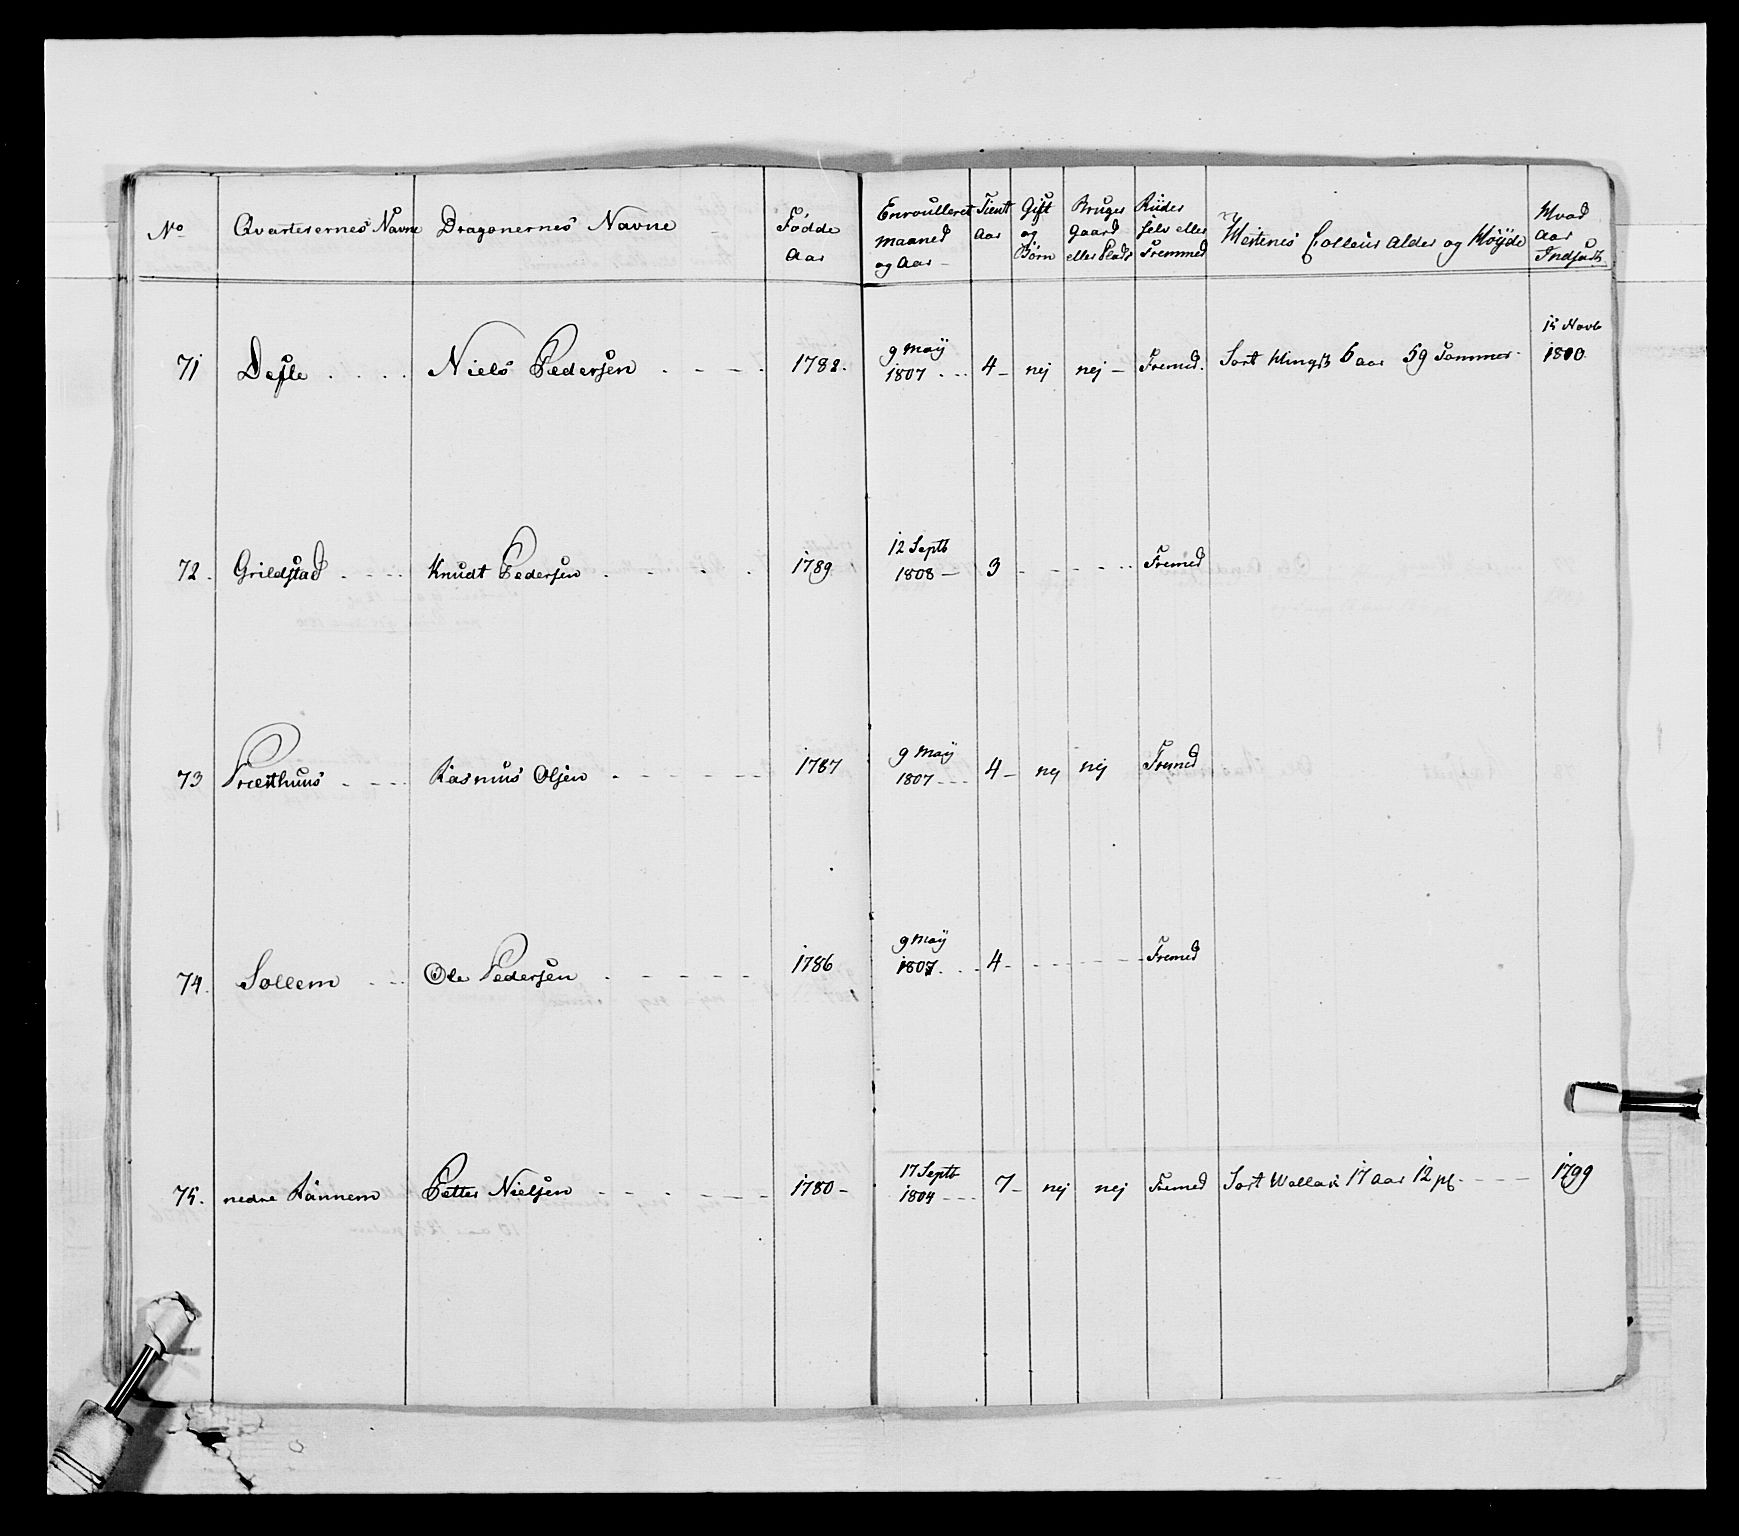 No Qvarterernes Navne Dragonernes Navne Fødde Aar Enroulleret maaned og Aar Tient Aar Gift og Børn Bruger gaard eller Plads Riider selv eller Fremmed Hestenes Colleur Alder og Høyde Hvad Aar Indsadt
71 Defle Niels Pedersen 1782. 9 May 1807 4 nej nej Fremed. Sort Hingst 6 aar 59 Tommer 15 Novb 1810
72. Grildstad Knudt Pedersen 1789 12 Septb 1808 3 Fremed
73 Præsthuus Rasmus Olsen 1787 9 May 1807 4 nej nej Fremed
74. Sollem Ole Pedersen 1786 9 May 1807 4 Fremed
75. nedre Rännem Petter Nielsen 1780 17 Septb 1804 7 nej nej Fremed Sort Wallak 17 aar 12 pl 1799